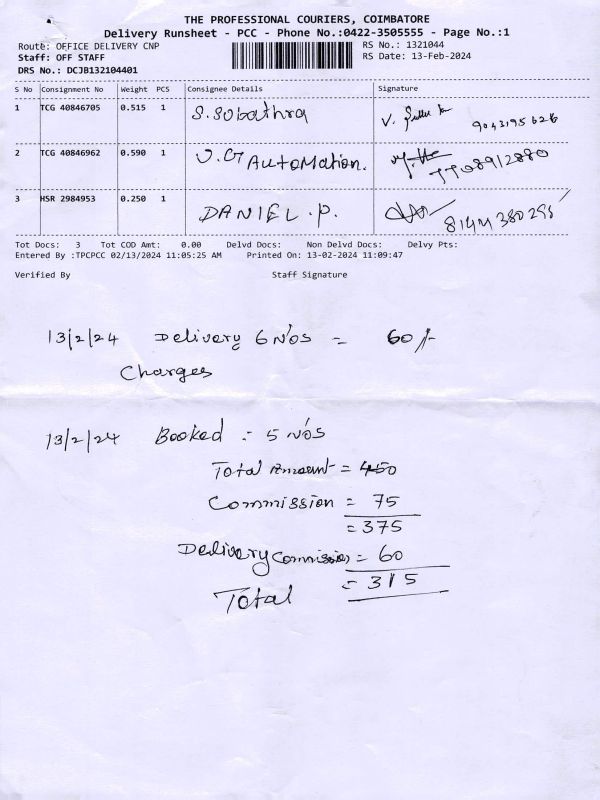 THE PROFESSIONAL COURIERS, COIMBATORE
Delivery Runsheet - PCC - Phone No.:0422-3505555 - Page No.:1
Route: OFFICE DELIVERY CNP RS No.: 1321044
Staff: OFF STAFF RS Date: 13-Feb-2024
DRS No.: DCJB132104401
S No Consignment No Weight PCS Consignee Details Signature
1 TCG 40846705 0.515 1 S.Sobathra V. 9043195626
2 TCG 40846962 0.590 1 V.G Automation. 7708912880
3 HSR 2984953 0.250 1 DANIEL.P.
Tot Docs: 3 Tot COD Amt: 0.00 Delvd Docs: Non Delvd Docs: Delvy Pts:
Entered By :TPCPCC 02/13/2024 11:05:25 AM Printed On: 13-02-2024 11:09:47
Verified By Staff Signature
13/2/24 Delivery 6 Nos = 60/-
Charges
13/2/24 Booked = 5 Nos
Total Amount = 450
Commission = 75
= 375
Delivery Commission = 60
Total = 315